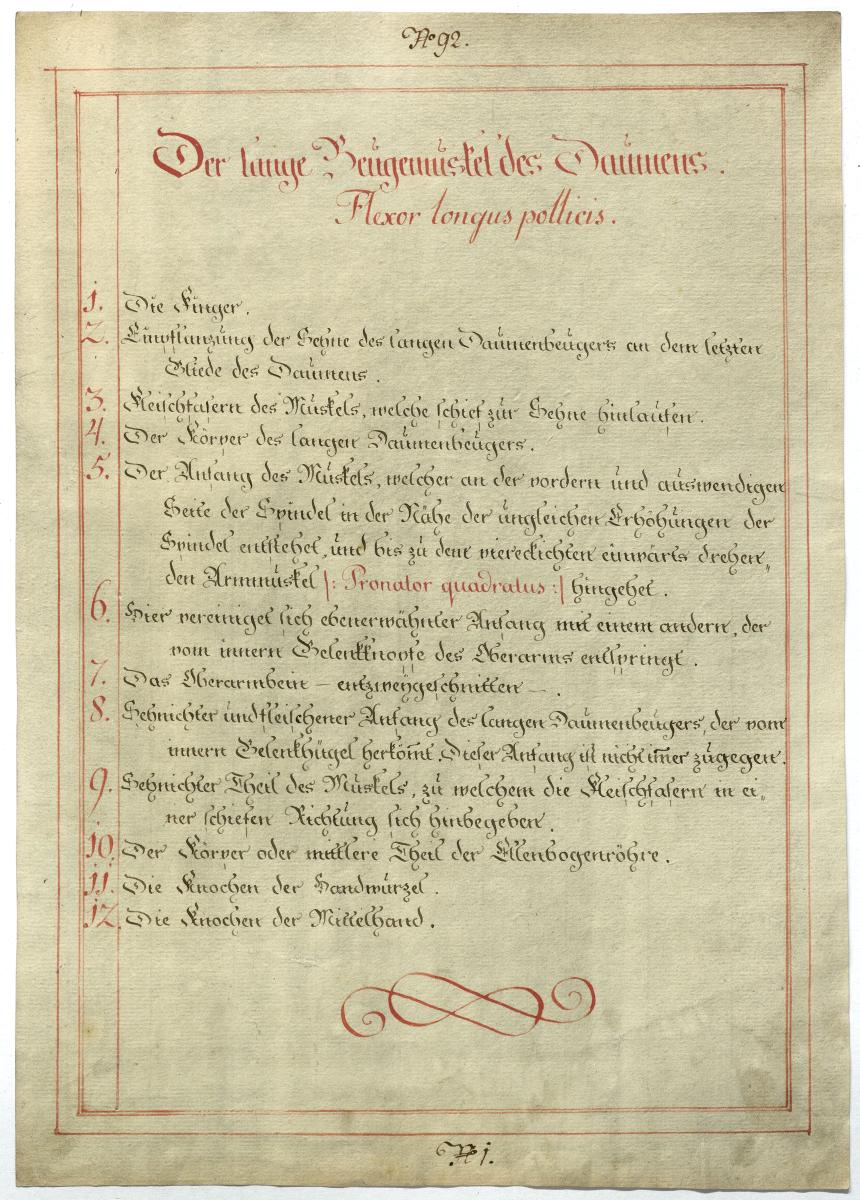 No 92.
Der lange Beugemuskel des Daumens.
Flexor longus pollicis.
1. Die Finger.
2. Einpflanzung der Sehne des langen Daumenbeugers an dem letzten
Gliede des Daumens.
3. Fleischfasern des Muskels, welche schief zur Sehne hinlaufen.
4. Der Körper des langen Daumenbeugers.
5. Der Anfang des Muskels, welcher an der vordern und auswendigen
Seite der Spindel in der Nähe der ungleichen Erhöhungen der
Spindel entstehet, und bis zu dem viereckichten einwärts drehen„
den Armmuskel |: Pronator quadratus :| hingehet.
6. Hier vereiniget sich ebenerwähnter Anfang mit einem andern, der
vom innern Gelenkknopfe des Oberarms entspringt.
7. Das Oberarmbein – entzweygeschnitten –.
8. Sehnichter und fleischener Anfang des langen Daumenbeugers, der vom
innern Gelenkhügel herkom̅t. Dieser Anfang ist nicht im̅er zugegen.
9. Sehnichter Theil des Muskels, zu welchem die Fleischfasern in ei„
ner schiefen Richtung sich hinbegeben.
10. Der Körper oder mittlere Theil der Ellenbogenröhre.
11. Die Knochen der Handwurzel.
12. Die Knochen der Mittelhand.